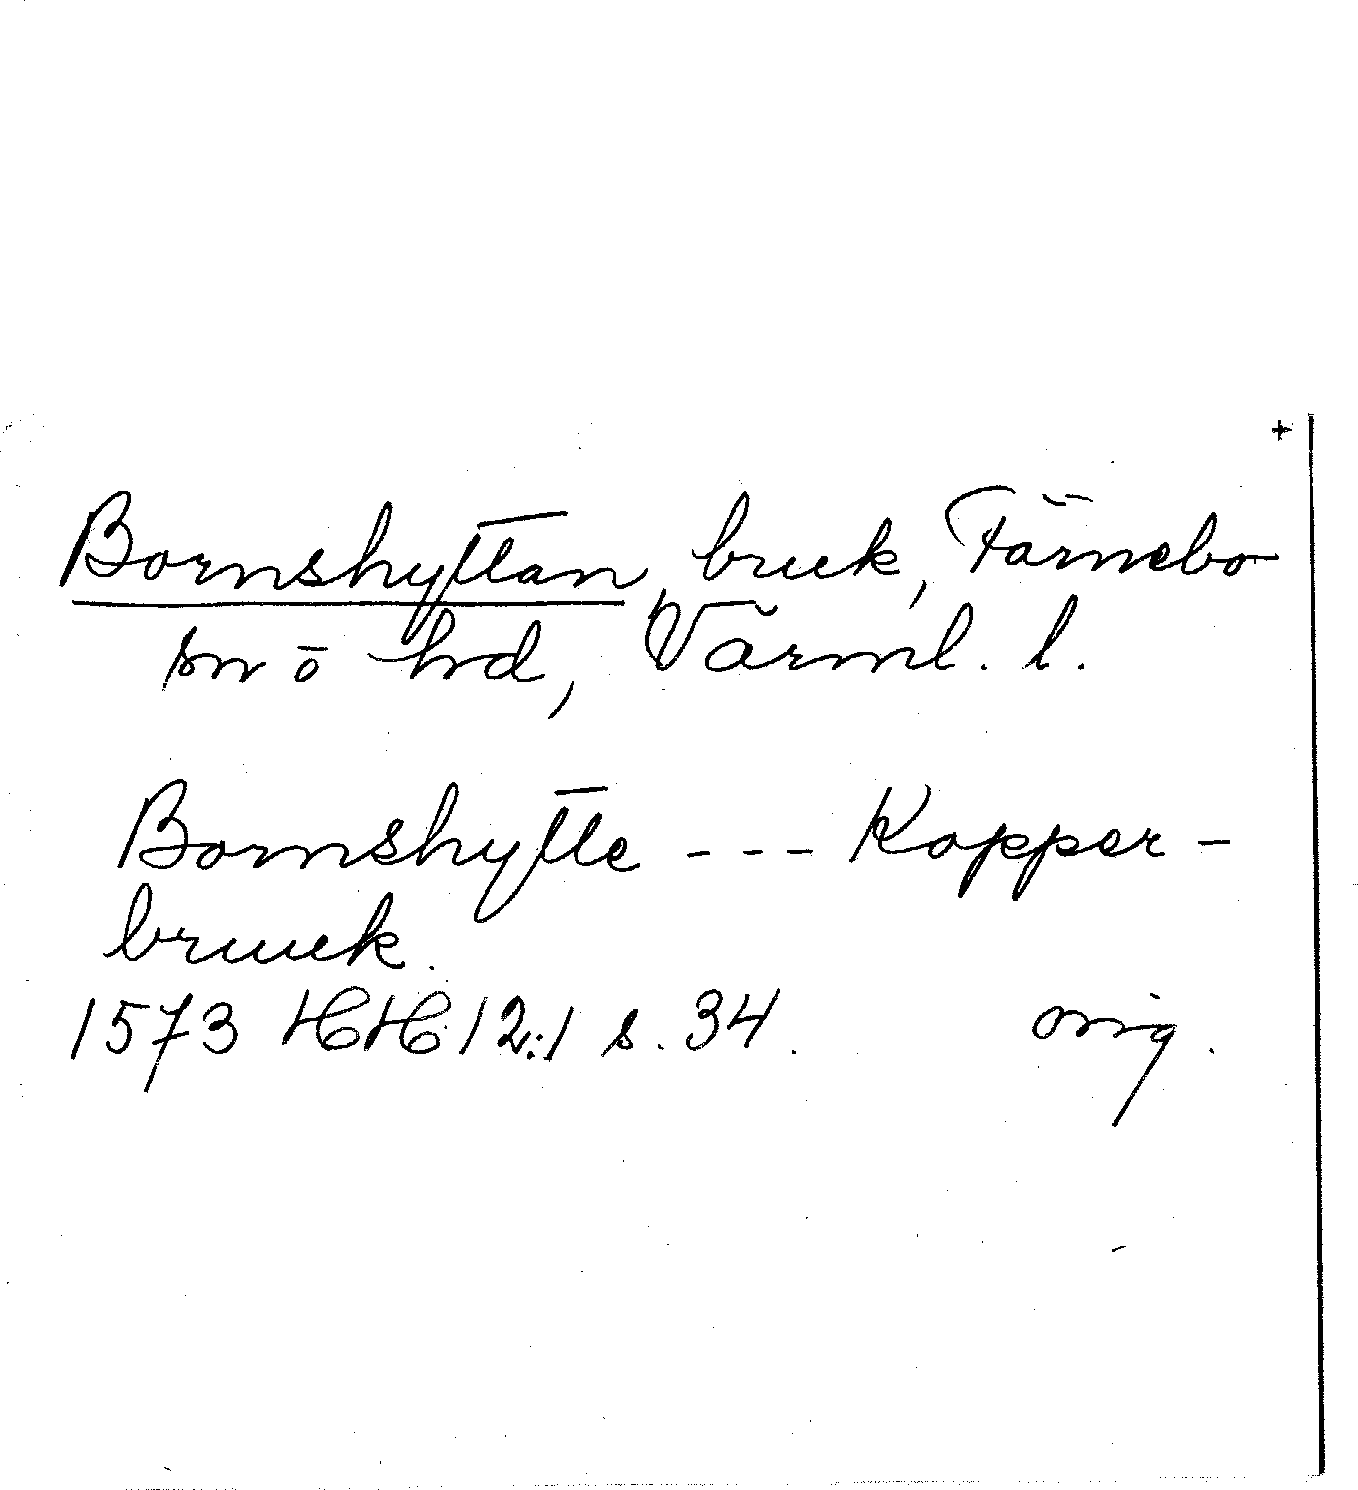 +
Bornshyttan, bruk, Färnebo
sn o hd, Värml. l.
Bornshytte - - - Kopper-
bruuk.
1573 HH 12:1 s. 34. orig.